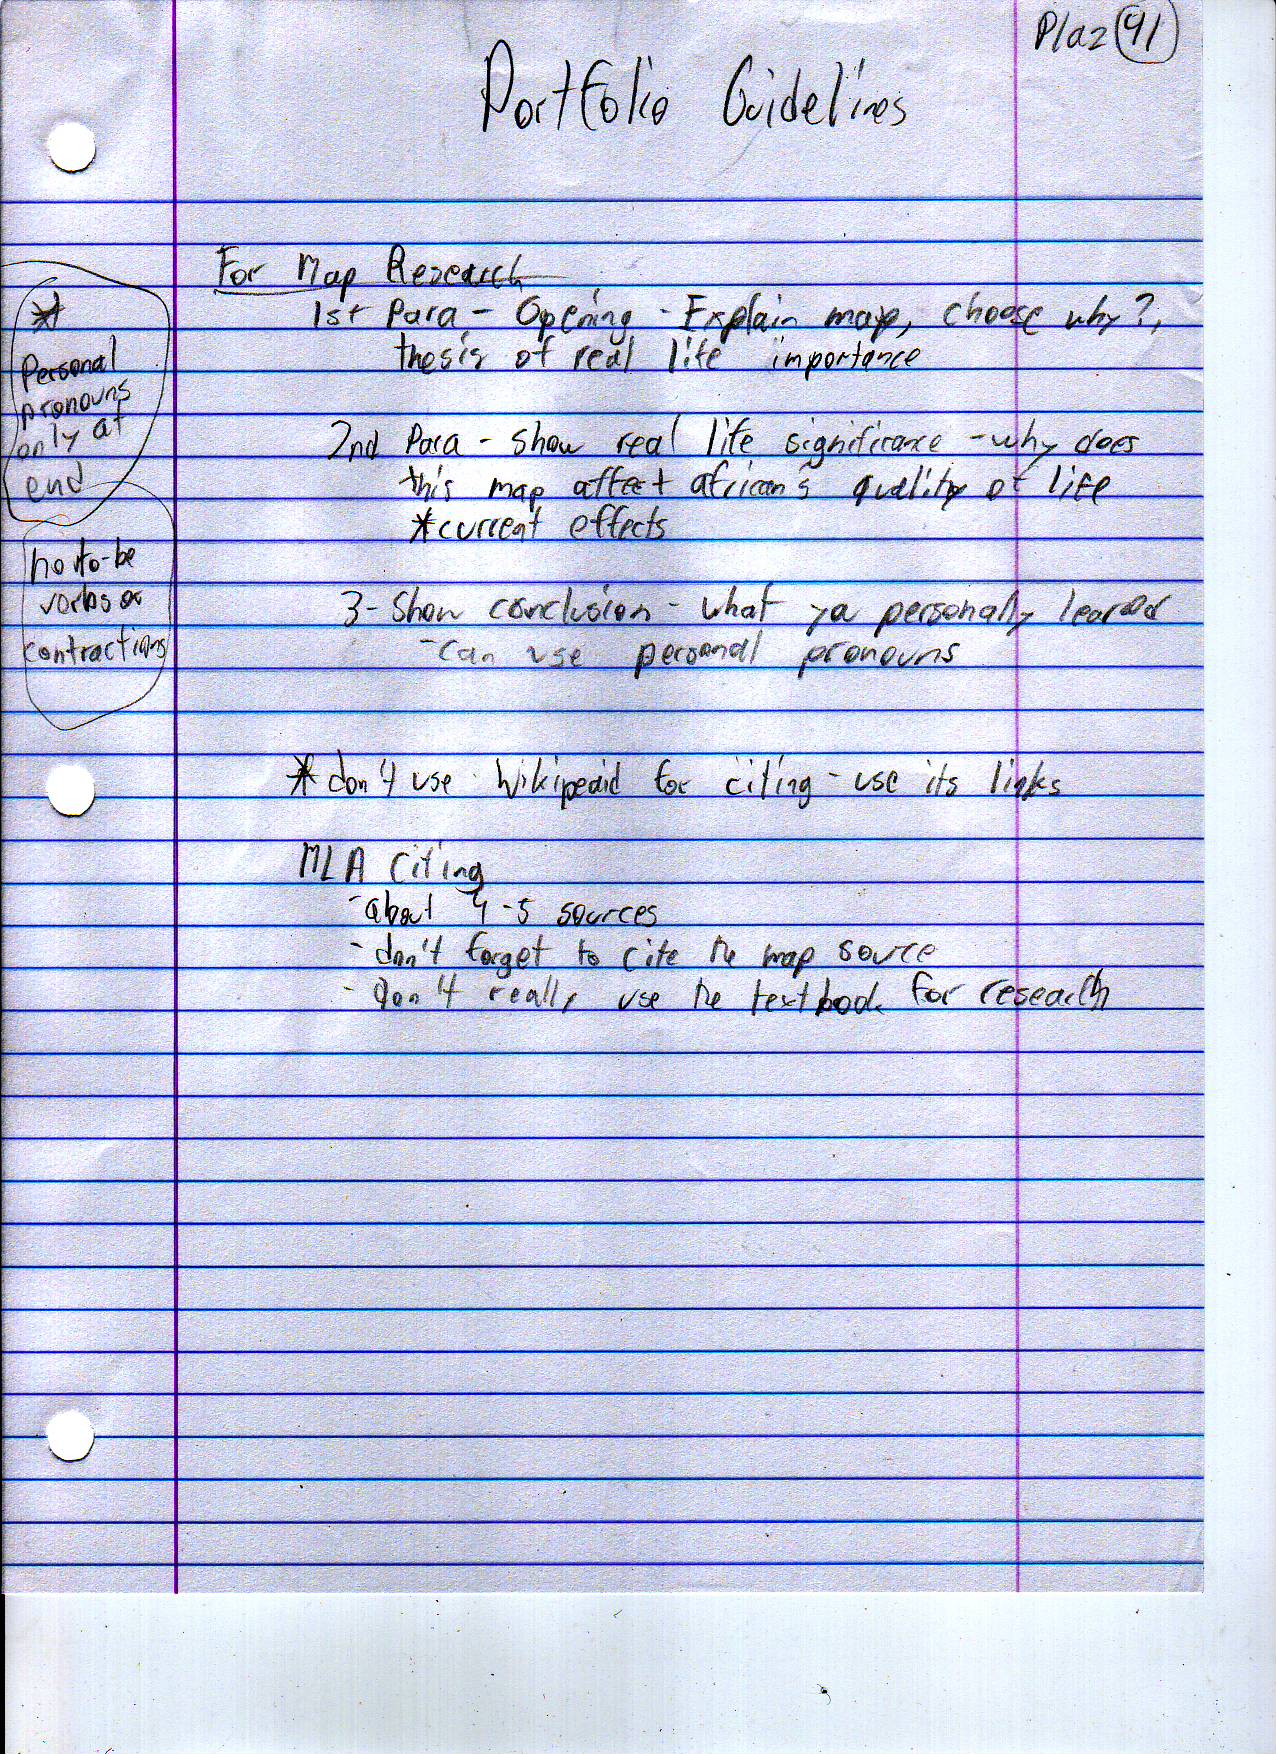 Plaz 41
Portfolio Guidelines
For Map Research
1st Para - Opening - Explain map, choose why?,
thesis of real life importance
2nd Para - show real life significance - why does
this map affect african's quality of life
*current effects
3- Show conclusion - what ya personally learned
-can use personal pronouns
*
Personal
pronouns
only at
end
no to-be
verbs or
contractions
* don't use Wikipedia for citing - use its links
MLA Citing
-about 4-5 sources
- don't forget to cite the map source
- don't really use the textbook for research